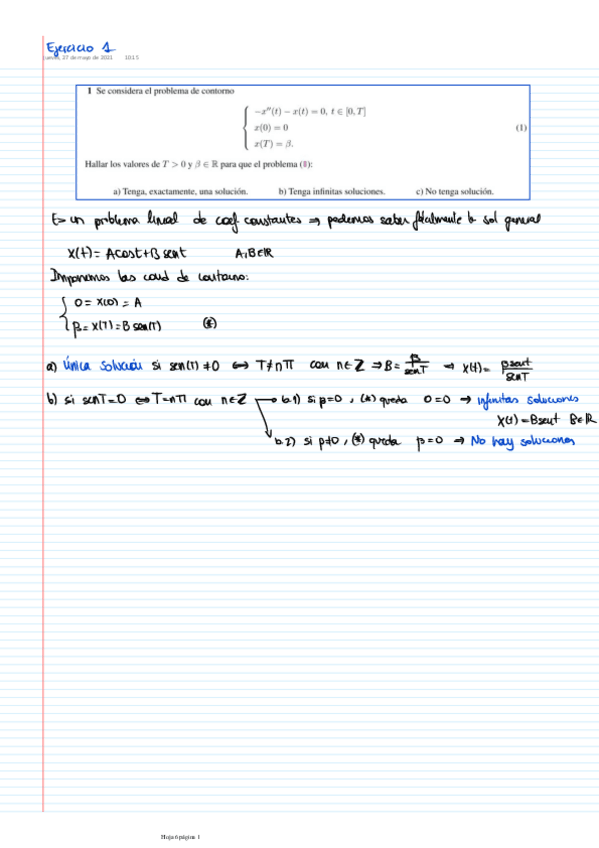 Ejercicio 1
jueves, 27 de mayo de 2021 10:15
1 Se considera el problema de contorno
{ −x''(t) − x(t) = 0, t ∈ [0, T]
x(0) = 0
x(T) = β. (1)
Hallar los valores de T > 0 y β ∈ ℝ para que el problema (1):
a) Tenga, exactamente, una solución. b) Tenga infinitas soluciones. c) No tenga solución.
Es un problema lineal de coef constantes ⇒ podemos saber fácilmente la sol general
X(t) = A cost + B sent A, B ∈ ℝ
Imponemos las cond de contorno:
{ 0 = X(0) = A
β = X(T) = B sen(T) (*)
a) Única solución si sen(T) ≠ 0 ⇔ T ≠ nπ con n ∈ ℤ ⇒ B = β/senT → X(t) = β sent/senT
b) si senT = 0 ⇔ T = nπ con n ∈ ℤ → b.1) si β = 0, (*) queda 0 = 0 → infinitas soluciones
X(t) = B sent B ∈ ℝ
b.2) si β ≠ 0, (*) queda β = 0 → No hay soluciones
Hoja 6 página 1